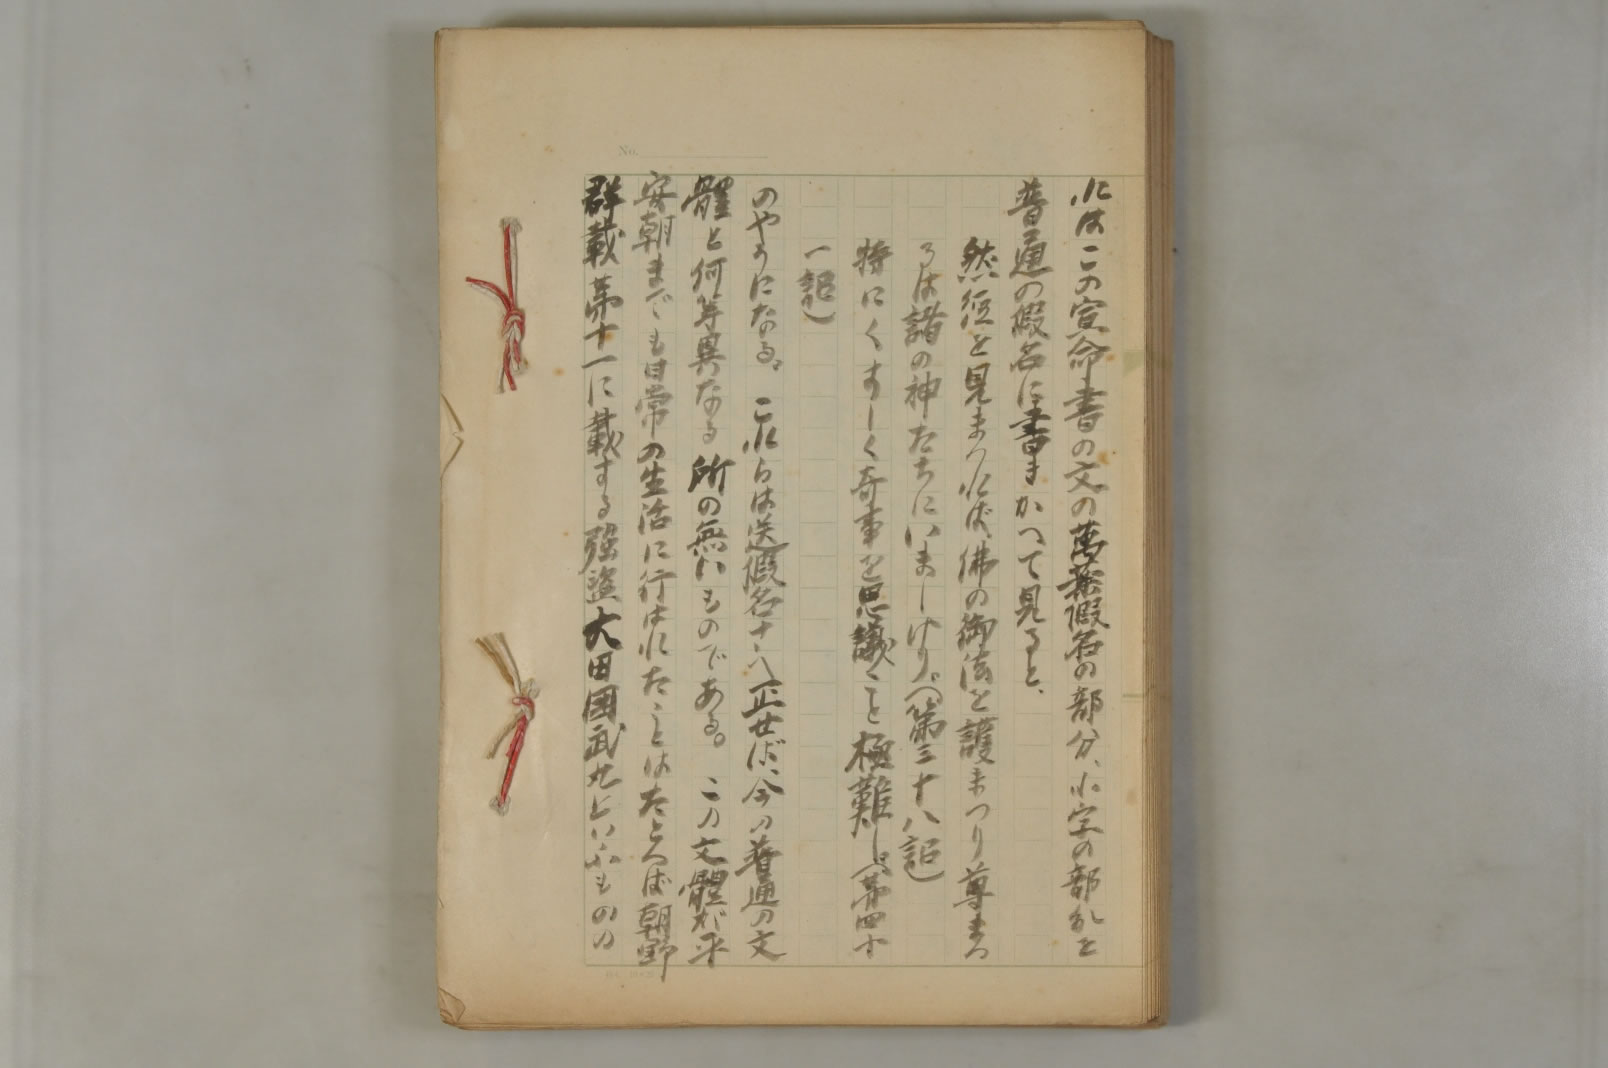 No.
れはこの宣命書の文の萬葉假名の部分、小字の部分を
普通の假名に書きかへて見ると、
然經を見まつれば、佛の御法を護まつり尊まつ
るは諸の神たちにいましけり。(第三十八詔)
特にくすしく奇事を思議ことを極難し。(第四十
一詔)
のやうになる。これらは送假名さへ正せば、今の普通の文
體と何等異なる所の無いものである。この文體が平
安朝までも日常の生活に行はれたことはたとへば朝野
群載第十一に載する強盜大田國武丸といふものの